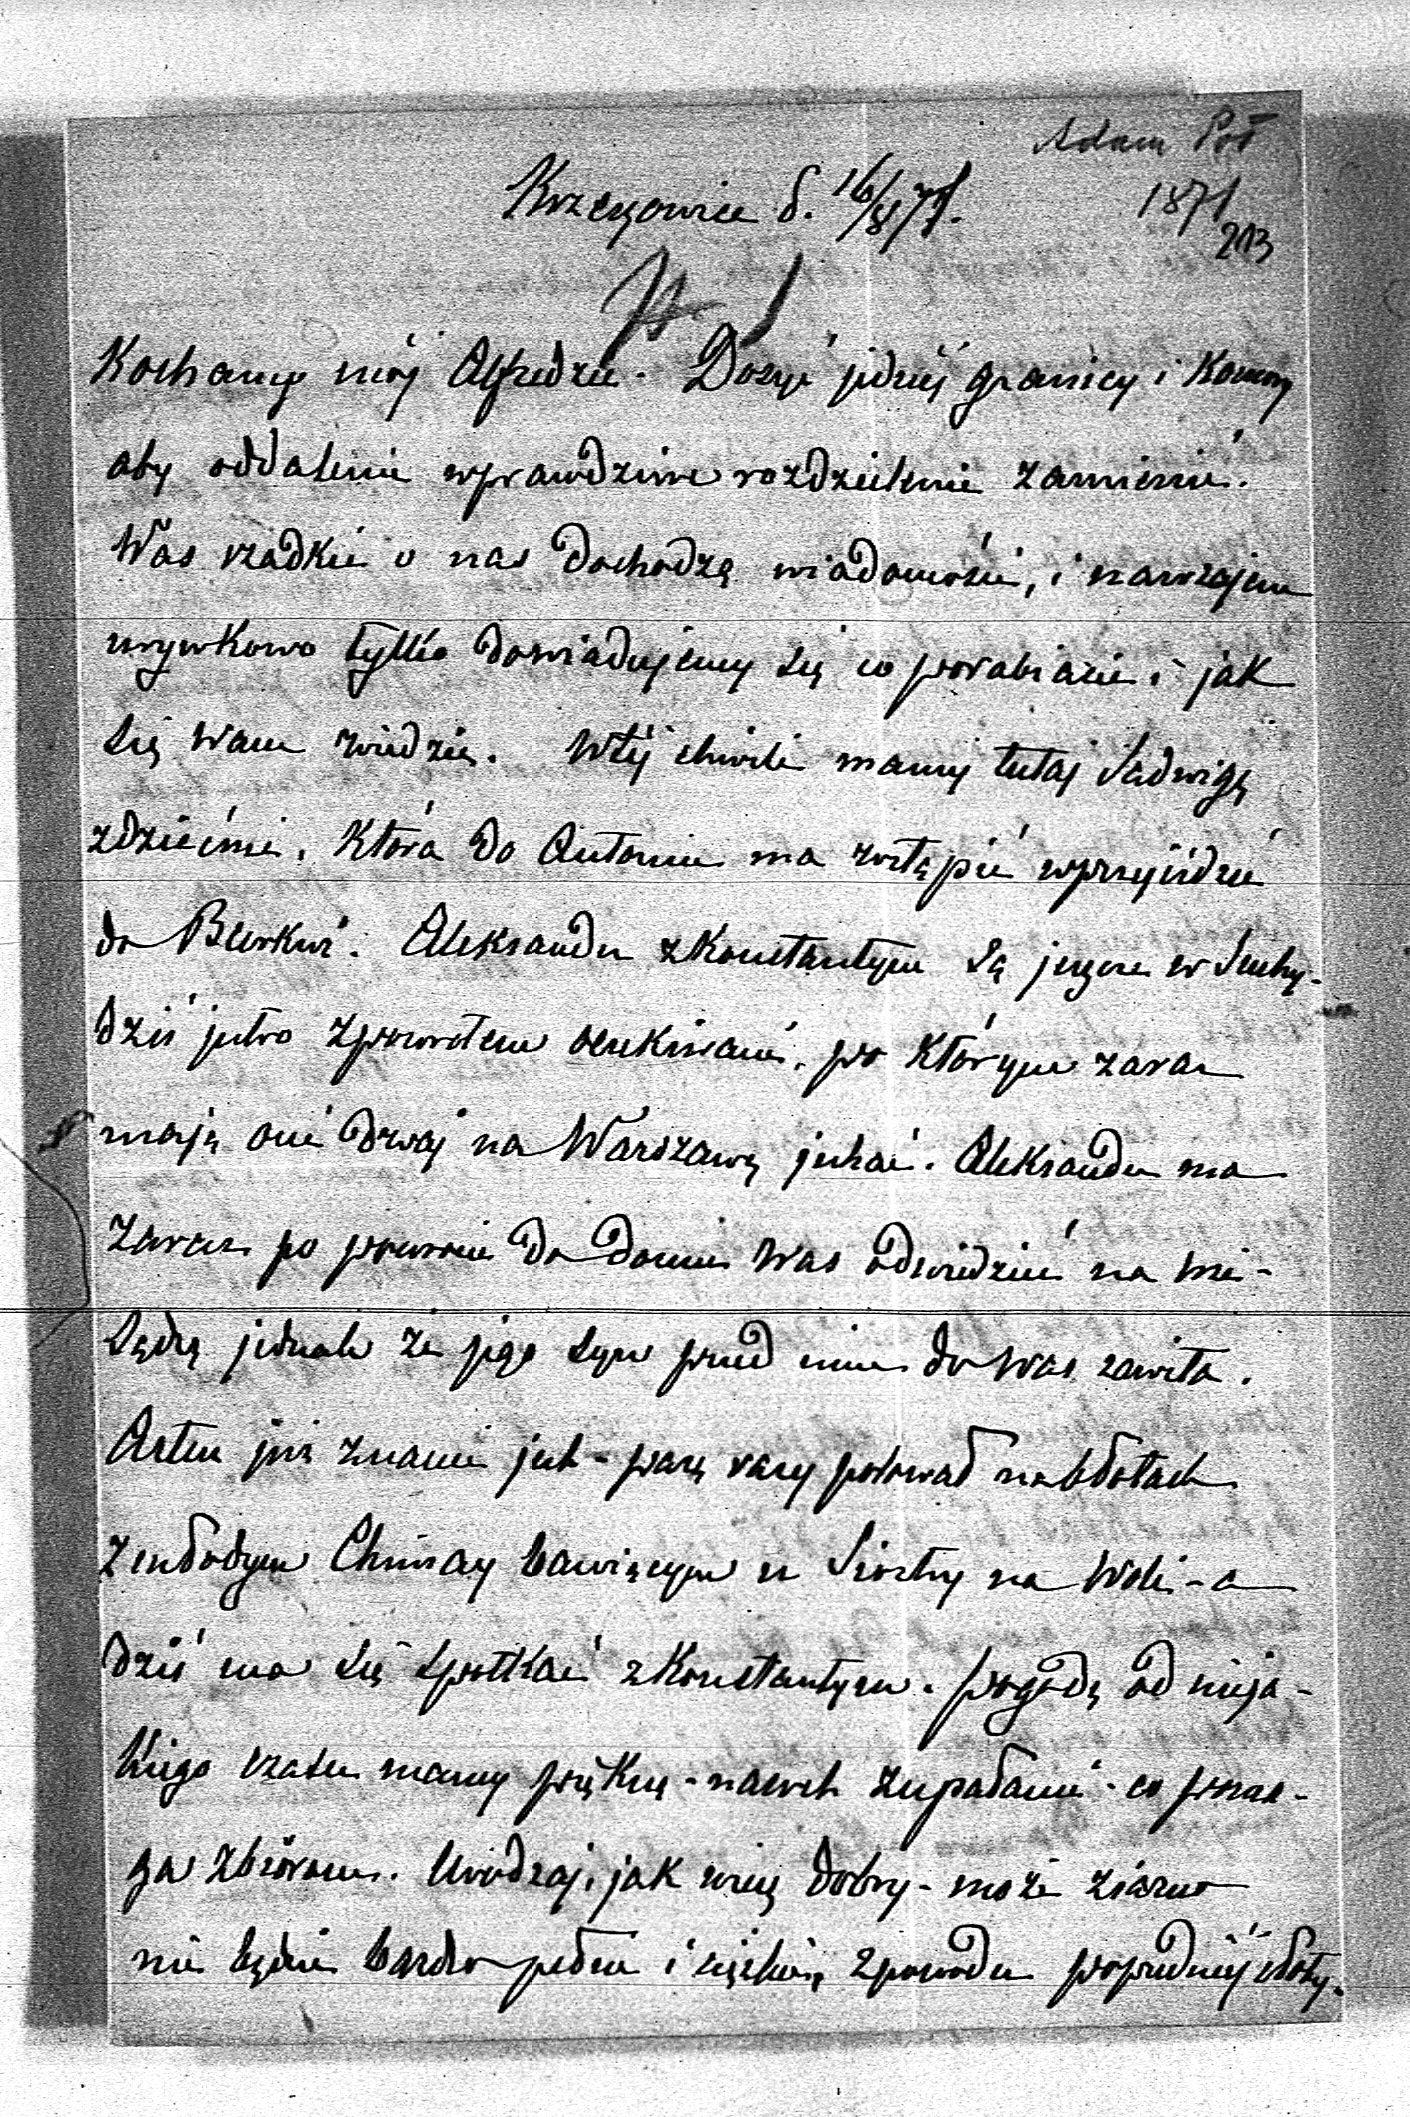 Adam Pot
1871
213
Krzeszowice d. 16/8 71.
Kochany mój Alfredzie. Dosyć jednéj granicy i Komory
aby oddalenie wprawdziwe rozdzielenie zamienić.
Was rzadkie o nas dochodzą wiadomości, i nawzajem
urywkowo tylko dowiadujemy się co porabiacie i jak
się wam wiedzie. Wtéj chwili mamy tutaj Jadwigę
zdziećmi, Która do Antonin ma wstąpić wprzejeździe
do . Aleksander zKonstantym są jeszcze w Suchy-
dziś jutro zpowrotem oczekiwani, po Którym zaraz
mają oni dwaj na Warszawę jechać. Aleksander ma
zaraz po powrocie do domu Was odwiedzić na
Sądzę jednak że jego syn przed nim do Was zawita.
Artur już znami jest - parę razy polował nabłotach
zmłodym Chimay bawiącym u Siostry na Woli - a
dziś ma się spotkać zKonstantym. Pogodę od nieja-
kiego czasu mamy piękną - nawet zupałami - co poma-
ga zbiorom. Urodzaj, jak dobry - może ziarno
nie będzie bardzo pełne i ciężkie, zpowodu poprzedniéj słoty.